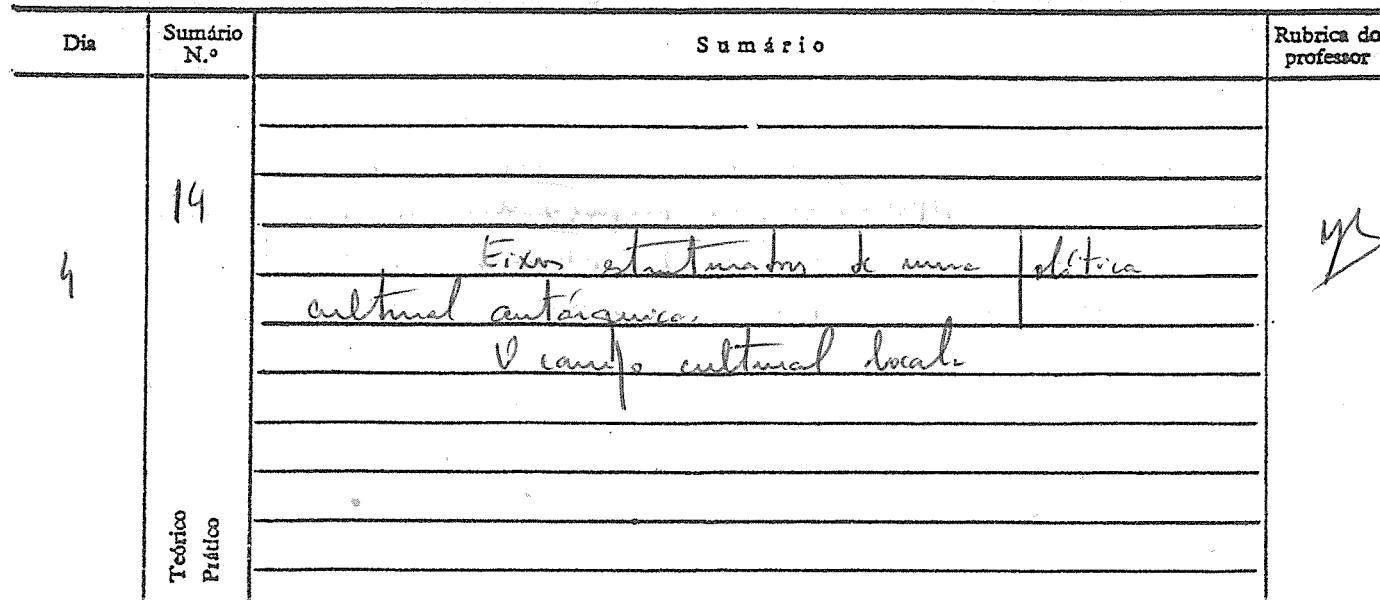 Dia
Sumário
N.º
Sumário
Rubrica do
professor
14
4
Eixos estruturadores de uma política
cultural autárquica.
O campo cultural local.
Teórico
Prático